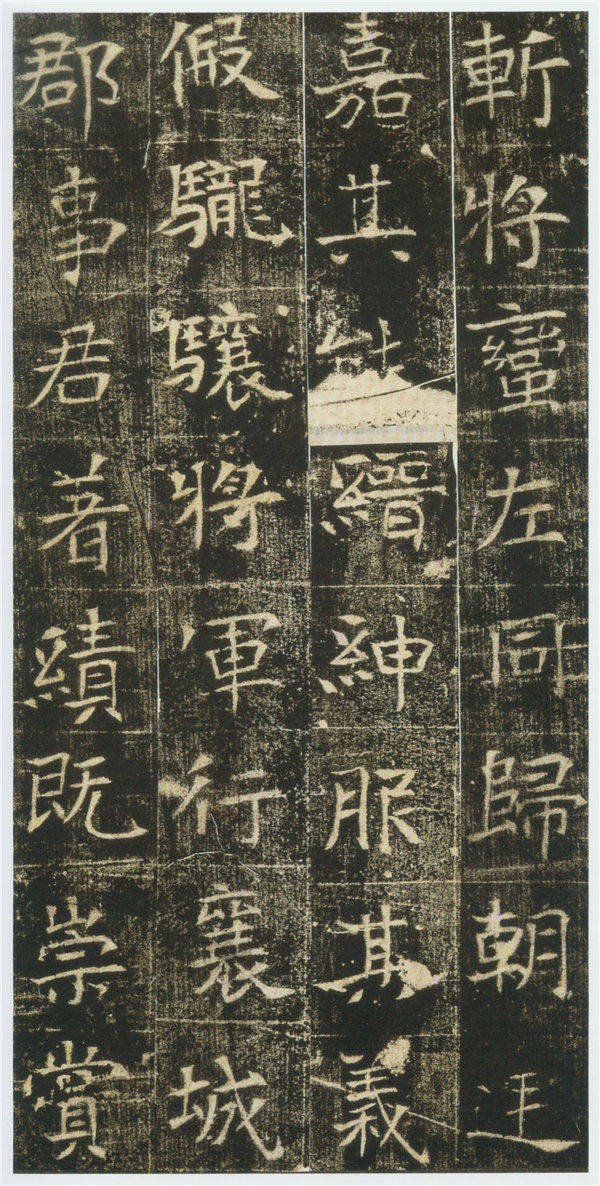 斬將蠻左同歸朝廷
嘉其能縉紳服其義
假驪驤將軍行襄城
郡事君著績既崇賞